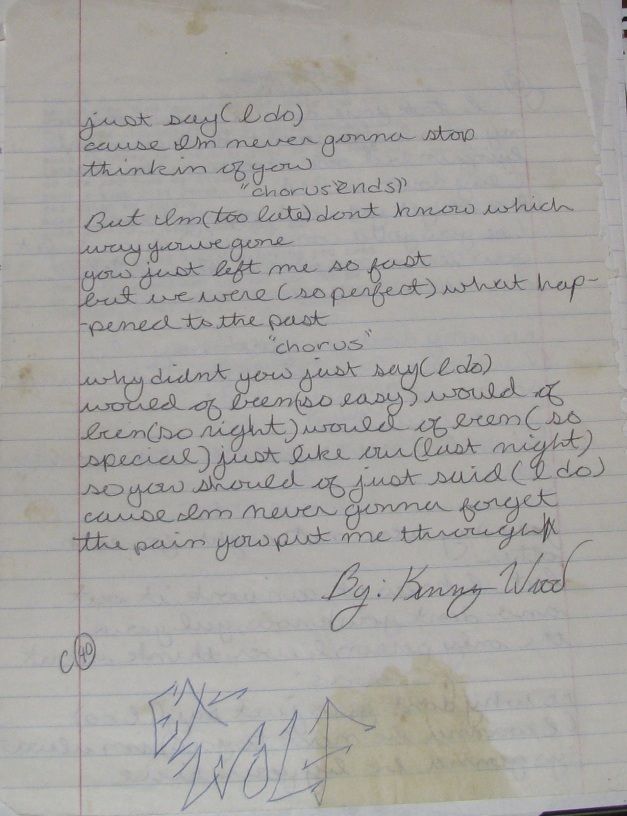 just say(I do)
cause Im never gonna stop
thinkin of you
"chorus ends"
But Im(too late)dont know which
way youve gone
you just left me so fast
but we were(so perfect)what hap-
-pened to the past
"chorus"
why didnt you just say(I do)
would of been(so easy)would of
been(so right)would of been(so
special)just like our(last night)
so you should of just said(I do)
cause Im never gonna forget
the pain you put me through
By: Kenny Wood
C 40
EX
WOLF